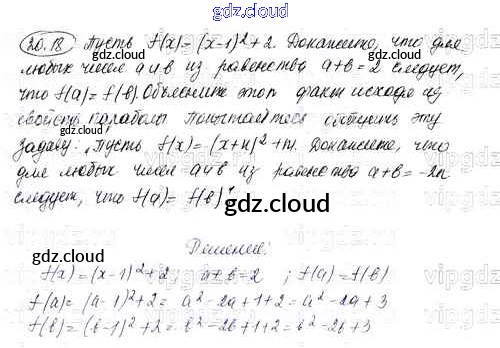 gdz.cloud
20.18 Пусть f(x) = (x-1)²+2. Докажите, что для
любых чисел a и b из равенства a+b=2 следует,
что f(a) = f(b). Объясните этот факт исходя из
свойств параболы Попытайтесь обобщить эту
задачу: "Пусть f(x) = (x+n)²+m. Докажите, что
для любых чисел a и b из равенства a+b = -2n
следует, что f(a) = f(b)"
gdz.cloud
Решение:
f(x) = (x-1)²+2, a+b=2 ; f(a) = f(b)
f(a) = (a-1)²+2 = a²-2a+1+2 = a²-2a+3
f(b) = (b-1)²+2 = b²-2b+1+2 = b²-2b+3
gdz.cloud